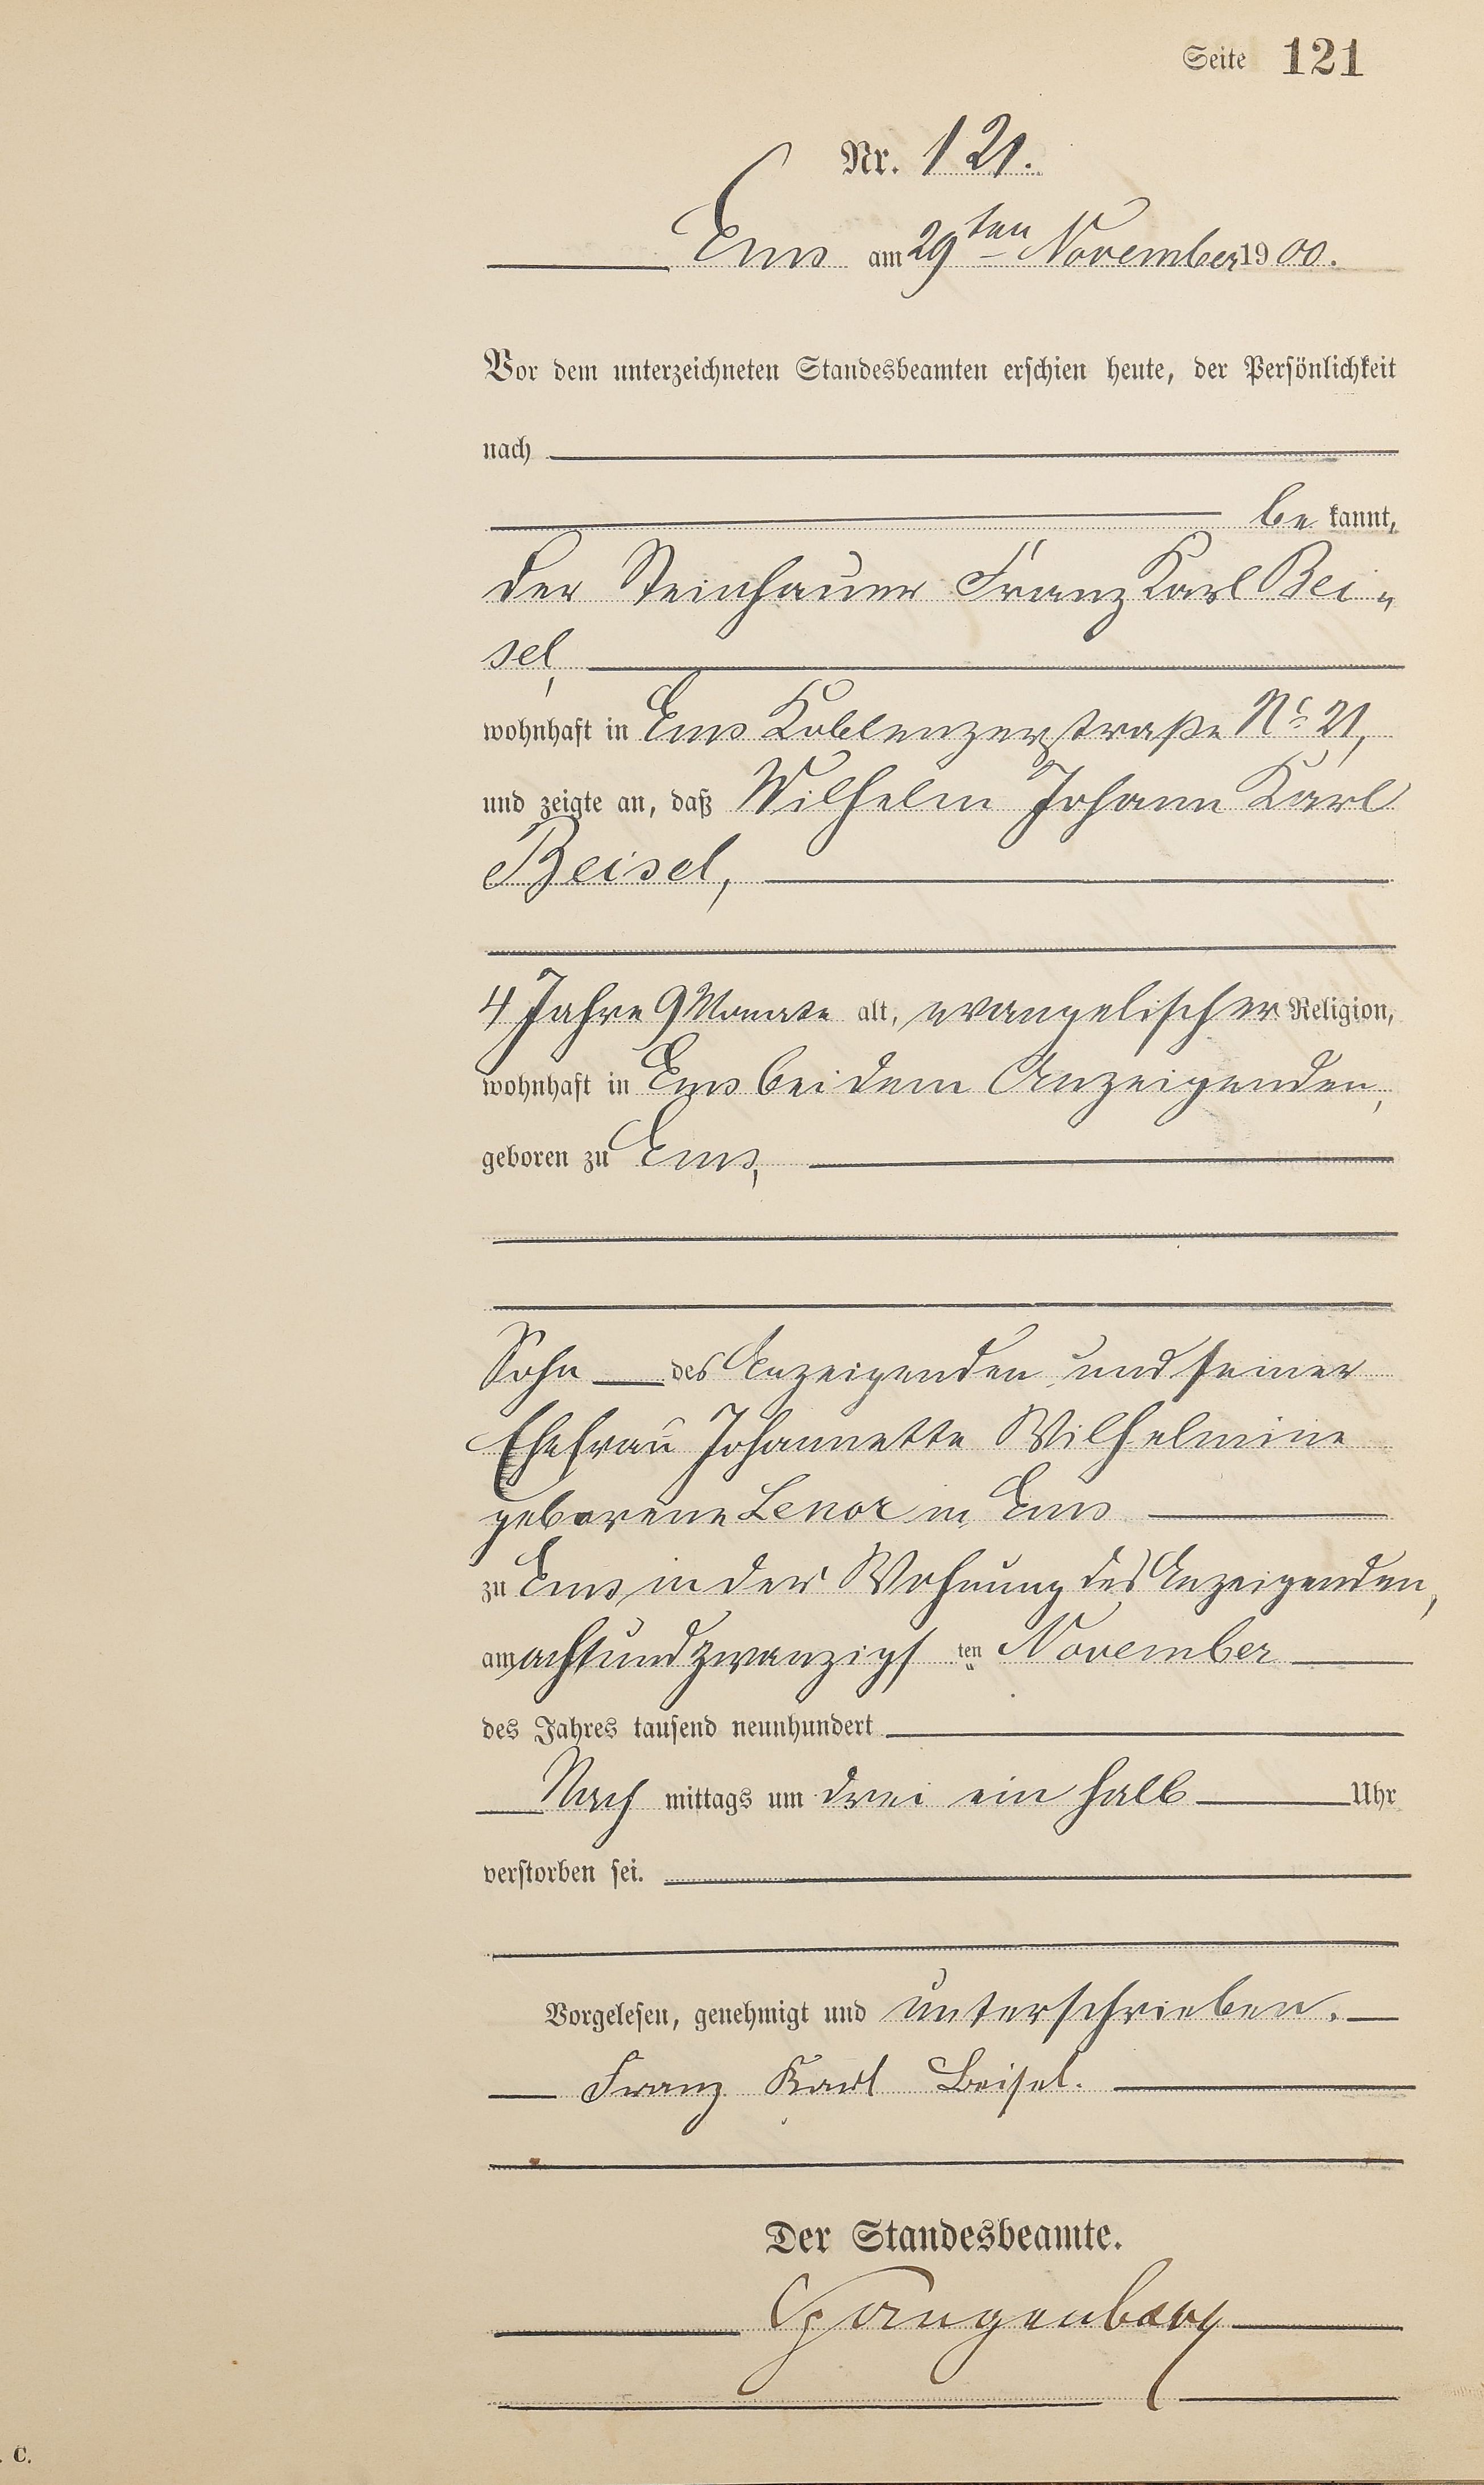 Seite 121
Nr. 121.
Ems am 29ten November 1900.
Vor dem unterzeichneten Standesbeamten erschien heute, der Persönlichkeit
nach
be kannt,
der Steinhauer Franz Karl Bei-
sel,
wohnhaft in Ems Koblenzerstraße No 21,
und zeigte an, daß Wilhelm Johann Karl
Beisel,
4 Jahre 9 Monate alt, evangelischer Religion,
wohnhaft in Ems bei dem Anzeigenden,
geboren zu Ems,
Sohn des Anzeigenden und seiner
Ehefrau Johannette Wilhelmine
geborene Lenor in Ems
zu Ems in der Wohnung des Anzeigenden,
am achtundzwanzigs ten November
des Jahres tausend neunhundert
Nach mittags um drei ein halb Uhr
verstorben sei.
Vorgelesen, genehmigt und unterschrieben.
Franz Karl Beisel.
Der Standesbeamte.
Spangenberg
. C.